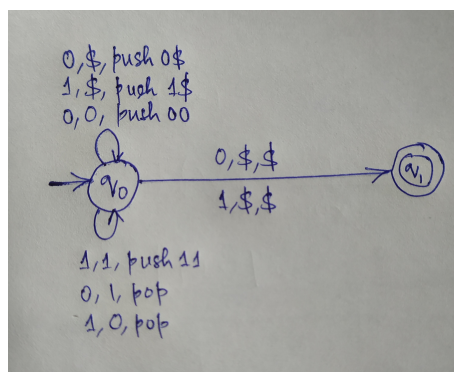 0, $, push 0$
1, $, push 1$
0, 0, push 00
q0
0, $, $
1, $, $
q1
1, 1, push 11
0, 1, pop
1, 0, pop